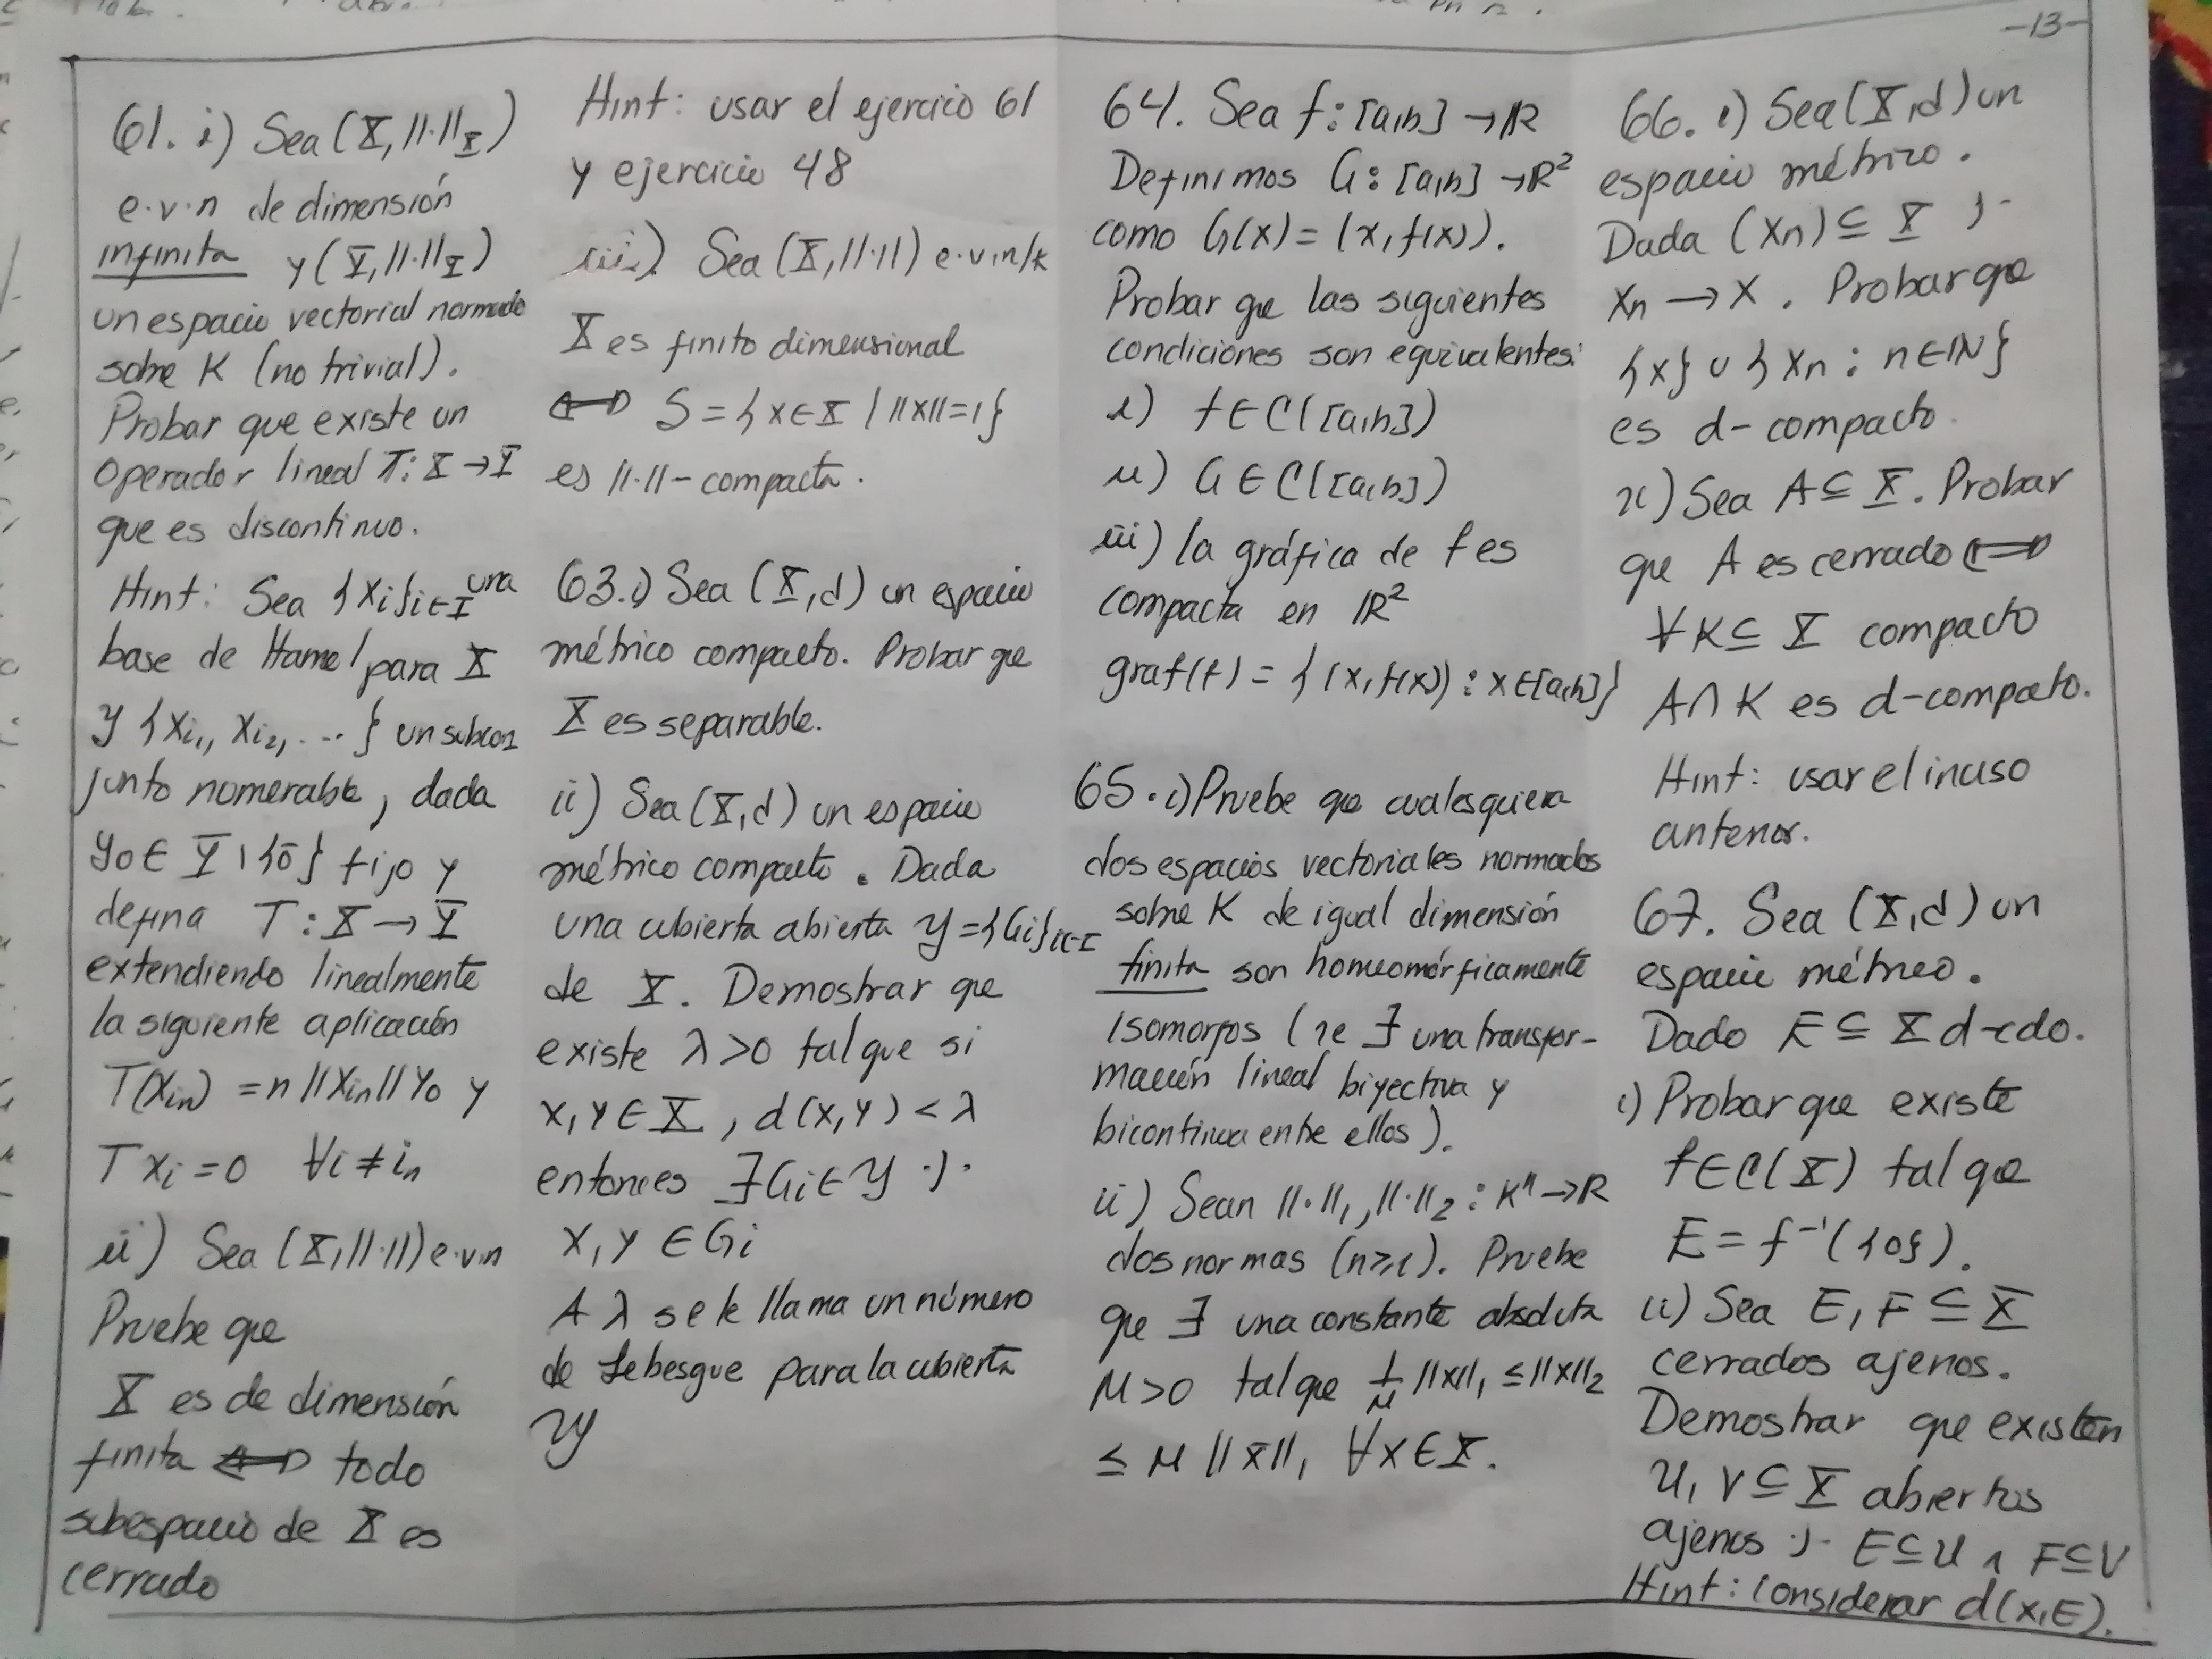 -13-
61. i) Sea (X, ||·||_X)
e.v.n de dimensión
infinita y (Y, ||·||_Y)
un espacio vectorial normado
sobre K (no trivial).
Probar que existe un
operador lineal T: X → Y
que es discontinuo.
Hint: Sea {xi}i∈I una
base de Hamel para X
y {xi₁, xi₂, ...} un subcon
junto numerable, dada
y₀ ∈ Y \ {0̄} fijo y
defina T: X → Y
extendiendo linealmente
la siguiente aplicación
T(xin) = n ||xin|| y₀ y
T xi = 0 ∀i ≠ in
ii) Sea (X, ||·||) e.v.n
Pruebe que
X es de dimensión
finita ⟺ todo
subespacio de X es
cerrado
Hint: usar el ejercicio 61
y ejercicio 48
iii) Sea (X, ||·||) e.v.n/k
X es finito dimensional
⟺ S = {x ∈ X | ||x|| = 1}
es ||·|| - compacta.
63. i) Sea (X, d) un espacio
métrico compacto. Probar que
X es separable.
ii) Sea (X, d) un espacio
métrico compacto. Dada
una cubierta abierta Y = {Gi}i∈I
de X. Demostrar que
existe λ > 0 tal que si
x, y ∈ X, d(x, y) < λ
entonces ∃ Gi ∈ Y ·)·
x, y ∈ Gi
A λ se le llama un número
de Lebesgue para la cubierta
Y
64. Sea f: [a,b] → IR
Definimos G: [a,b] → IR²
como G(x) = (x, f(x)).
Probar que las siguientes
condiciones son equivalentes:
i) f ∈ C([a,b])
ii) G ∈ C([a,b])
iii) la gráfica de f es
compacta en IR²
graf(f) = {(x, f(x)) : x ∈ [a,b]}
65. i) Pruebe que cualesquiera
dos espacios vectoriales normados
sobre K de igual dimensión
finita son homeomórficamente
isomorfos (ie ∃ una transfor-
mación lineal biyectiva y
bicontinua entre ellos).
ii) Sean ||·||₁, ||·||₂ : Kⁿ → R
dos normas (n ≥ 1). Pruebe
que ∃ una constante absoluta
M > 0 tal que 1/M ||x||₁ ≤ ||x||₂
≤ M ||x||₁ ∀x ∈ X.
66. i) Sea (X, d) un
espacio métrico.
Dada (xn) ⊆ X )·
xn → x. Probar que
{x} ∪ {xn : n ∈ IN}
es d-compacto.
ii) Sea A ⊆ X. Probar
que A es cerrado ⟺
∀ K ⊆ X compacto
A ∩ K es d-compacto.
Hint: usar el inciso
anterior.
67. Sea (X, d) un
espacio métrico.
Dado E ⊆ X d-cdo.
i) Probar que existe
f ∈ C(X) tal que
E = f⁻¹({0}).
ii) Sea E, F ⊆ X
cerrados ajenos.
Demostrar que existen
U, V ⊆ X abiertos
ajenos )· E ⊆ U ∧ F ⊆ V
Hint: considerar d(x, E).